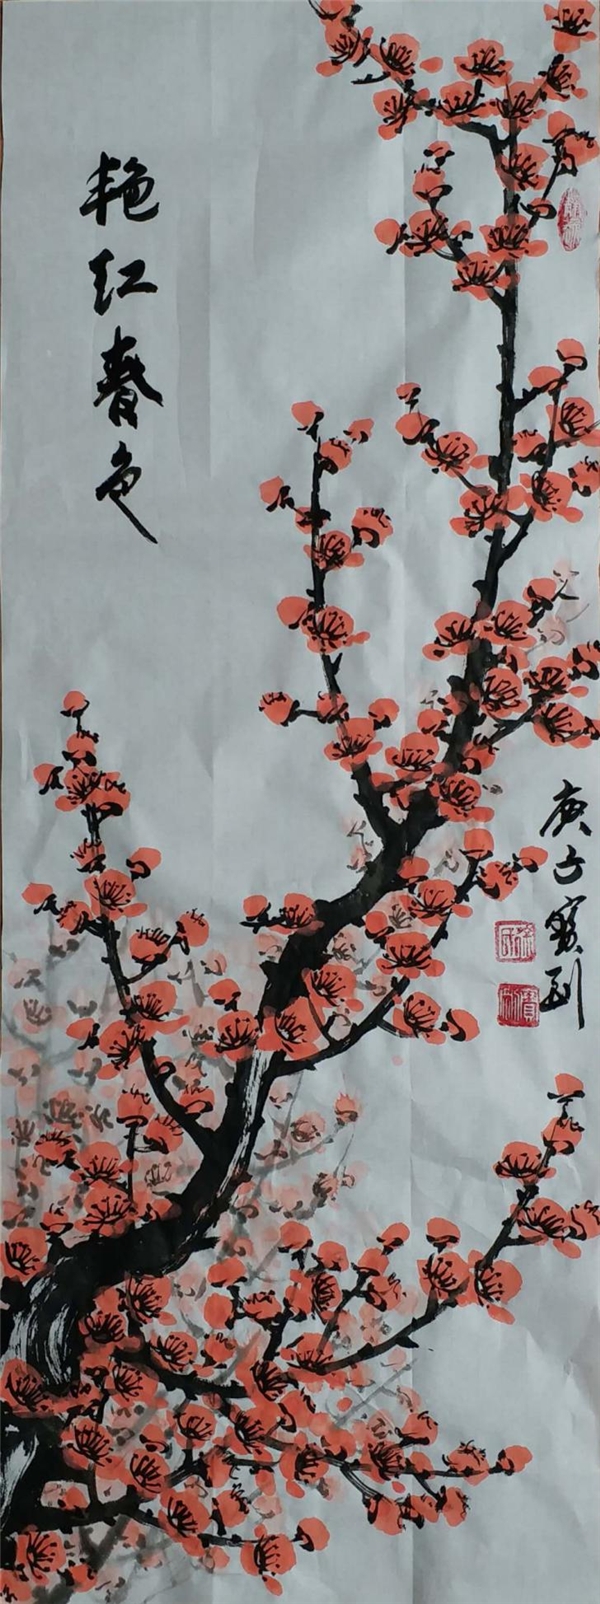 艳红春色
庚子寶